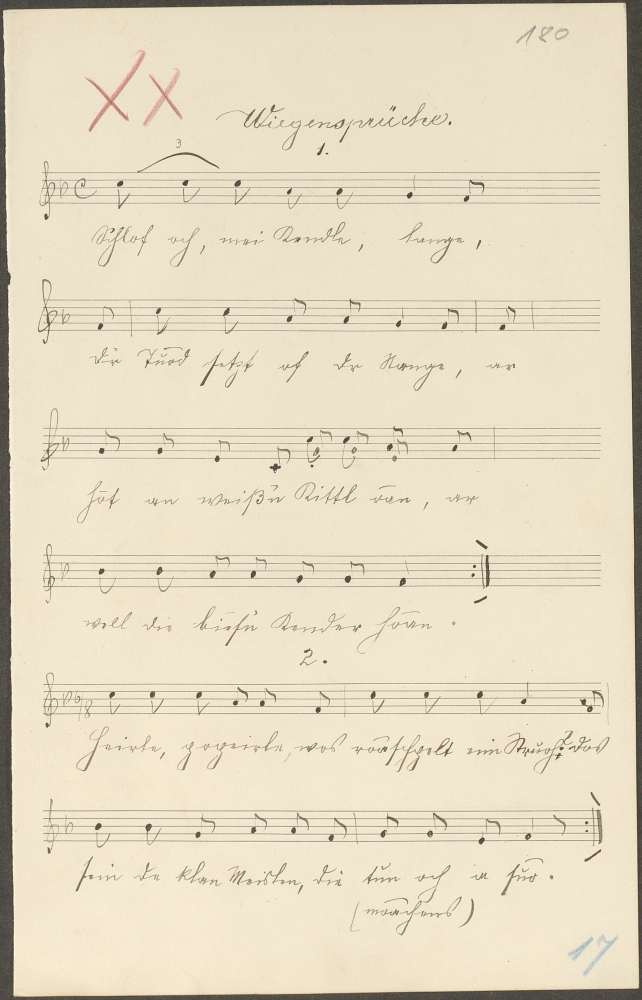 180
XX
Wiegensprüche.
1.
3
Schlof och, mei Kendle, lange,
dr Tuud setzt of dr Stange, ar
hot an weißn Kittl oan, ar
well die biesn Kender hoan.
2.
Heirle, popeirle, wos roaschpelt eim Struh? Dos
sein de klan Meislen, die tun och a su.
(moachens)
17